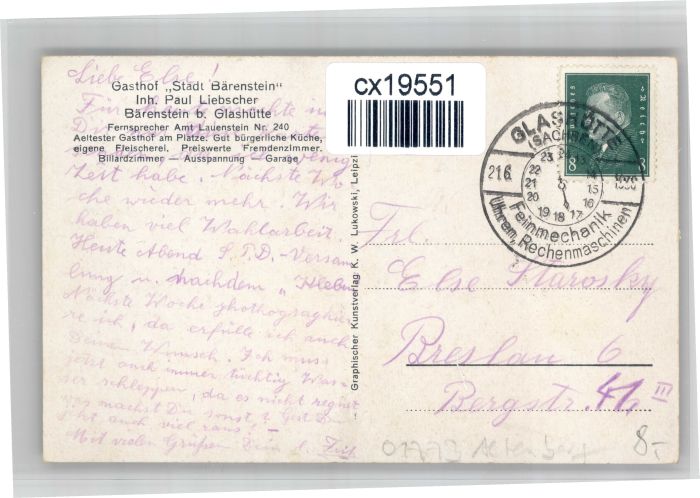 Liebe Else!
Gasthof „Stadt Bärenstein"
Inh. Paul Liebscher
Bärenstein b. Glashütte
Fernsprecher Amt Lauenstein Nr. 240
Aeltester Gasthof am Platze. Gut bürgerliche Küche,
eigene Fleischerei. Preiswerte Fremdenzimmer.
Billardzimmer — Ausspannung — Garage
Für
wenig
Zeit habe. Nächste Wo
che wieder mehr. Wir
haben viel Wahlarbeit.
Heute Abend S.P.D. Versam
lung u. nachdem „
Nächste Woche photographie
re ich, da erfülle ich auch
Deinen Wunsch. Ich muss
jetzt auch immer tüchtig Was-
ser schleppen, da es nicht regnet
was machst Du sonst?
auch viel
Mit vielen Grüßen Dein l. Fritz
Graphischer Kunstverlag K. W. Lukowski, Leipzi
cx19551
GLASHÜTTE
(SACHSEN)
21.6.
23
22
21
20
19 18 17
16
15
14
Feinmechanik
Uhren, Rechenmaschinen
8
Frl.
Else Starosky
Breslau 6
Bergstr. 41a III
01773 Altenberg
8,-